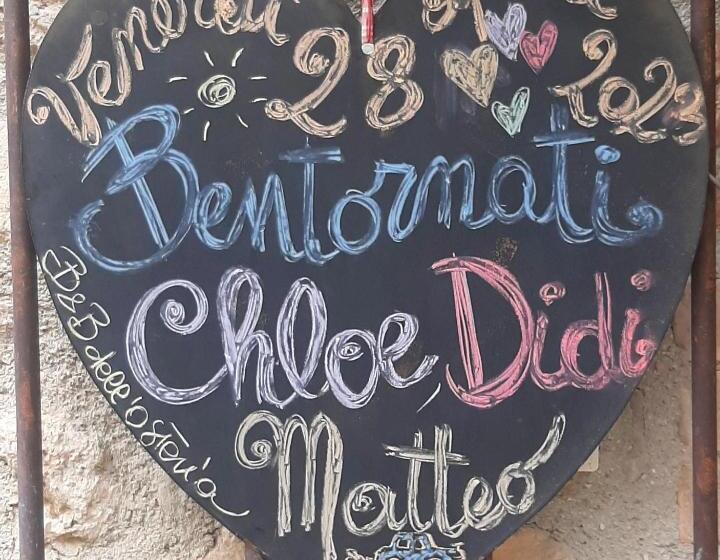 Venerdì
28
2023
Bentornati
Chloe, Didi
Matteo
B&B dell'Osteria